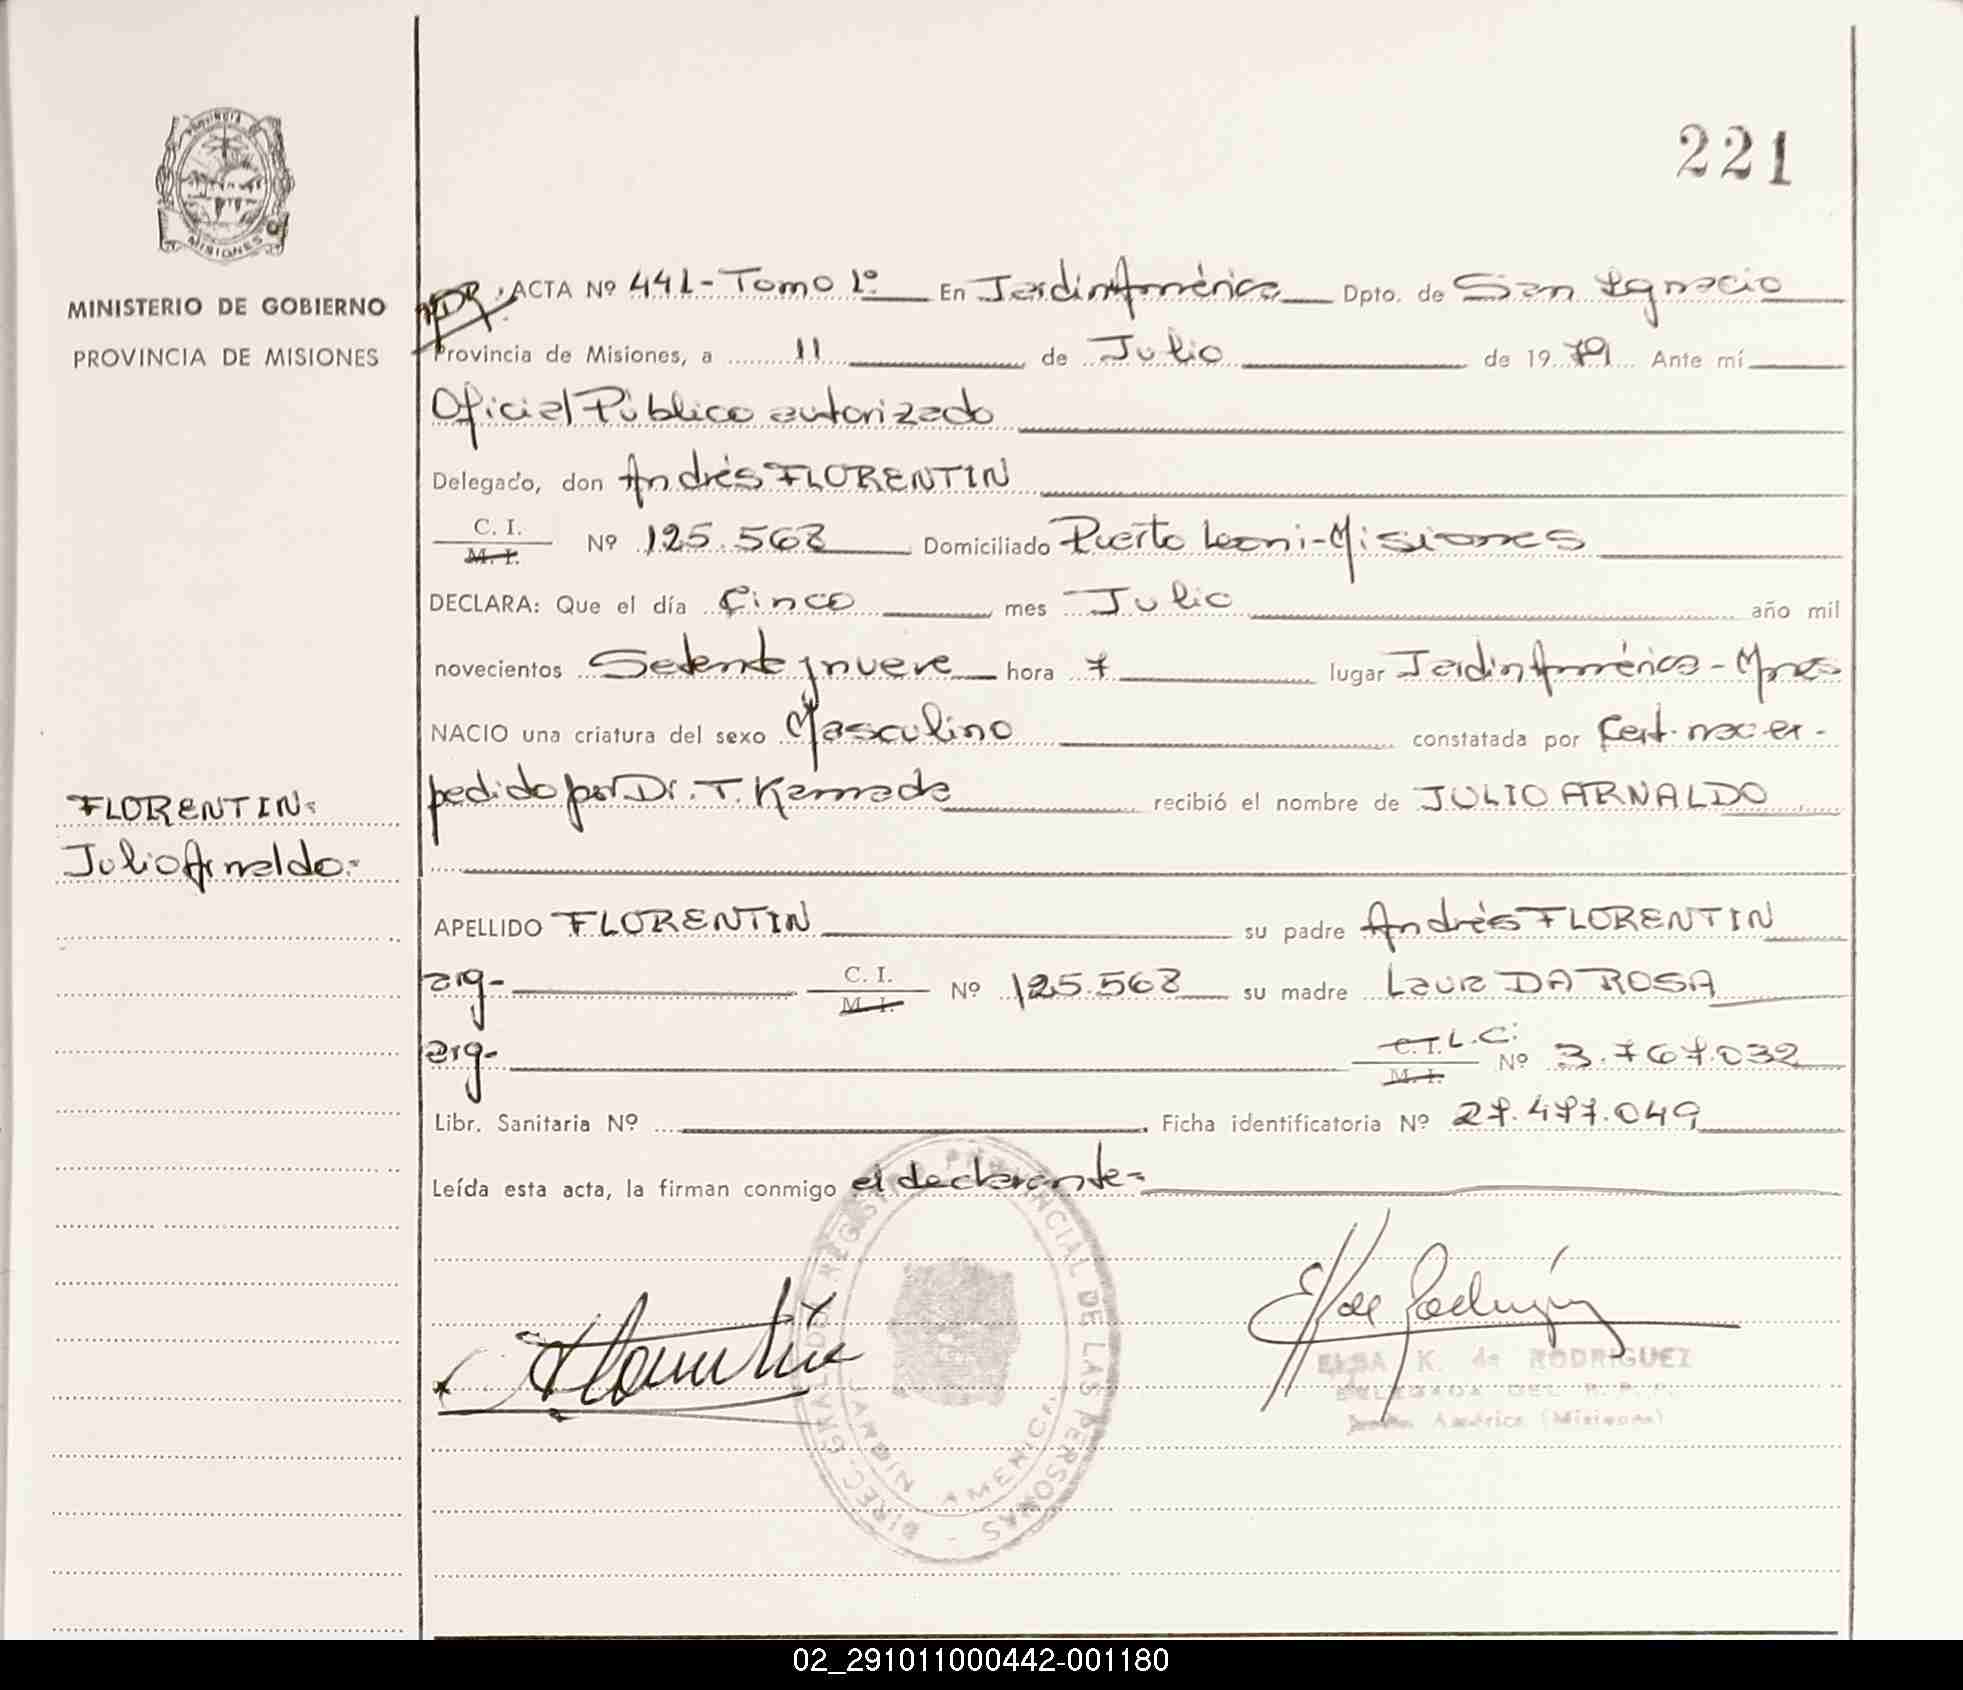 221
PROVINCIA DE
MISIONES
MINISTERIO DE GOBIERNO
PROVINCIA DE MISIONES
ACTA Nº 441-Tomo 1º En Jardin América Dpto. de San Ignacio
Provincia de Misiones, a 11 de Julio de 1979 Ante mí
Oficial Público autorizado
Delegado, don Andrés FLORENTIN
C. I.
M. I. Nº 125.568 Domiciliado Puerto Leoni-Misiones
DECLARA: Que el día Cinco mes Julio año mil
novecientos Setenta y nueve hora 7 lugar Jardin América - Mnes
NACIO una criatura del sexo Masculino constatada por Cert. nac. ex-
pedido por Dr. T. Kamada recibió el nombre de JULIO ARNALDO
FLORENTIN=
Julio Arnaldo=
APELLIDO FLORENTIN su padre Andrés FLORENTIN
arg- C. I.
M. I. Nº 125.568 su madre Laura DA ROSA
arg- C. I. L.C.
M. I. Nº 3.767.032
Libr. Sanitaria Nº Ficha identificatoria Nº 27.477.049
Leída esta acta, la firman conmigo el declarante=
DIREC. GRAL. DEL REGISTRO PROVINCIAL DE LAS PERSONAS -
JARDIN AMERICA
Florentin
E K de Rodriguez
ELSA K. de RODRIGUEZ
DELEGADA DEL R. P. P.
Jardin América (Misiones)
02_291011000442-001180